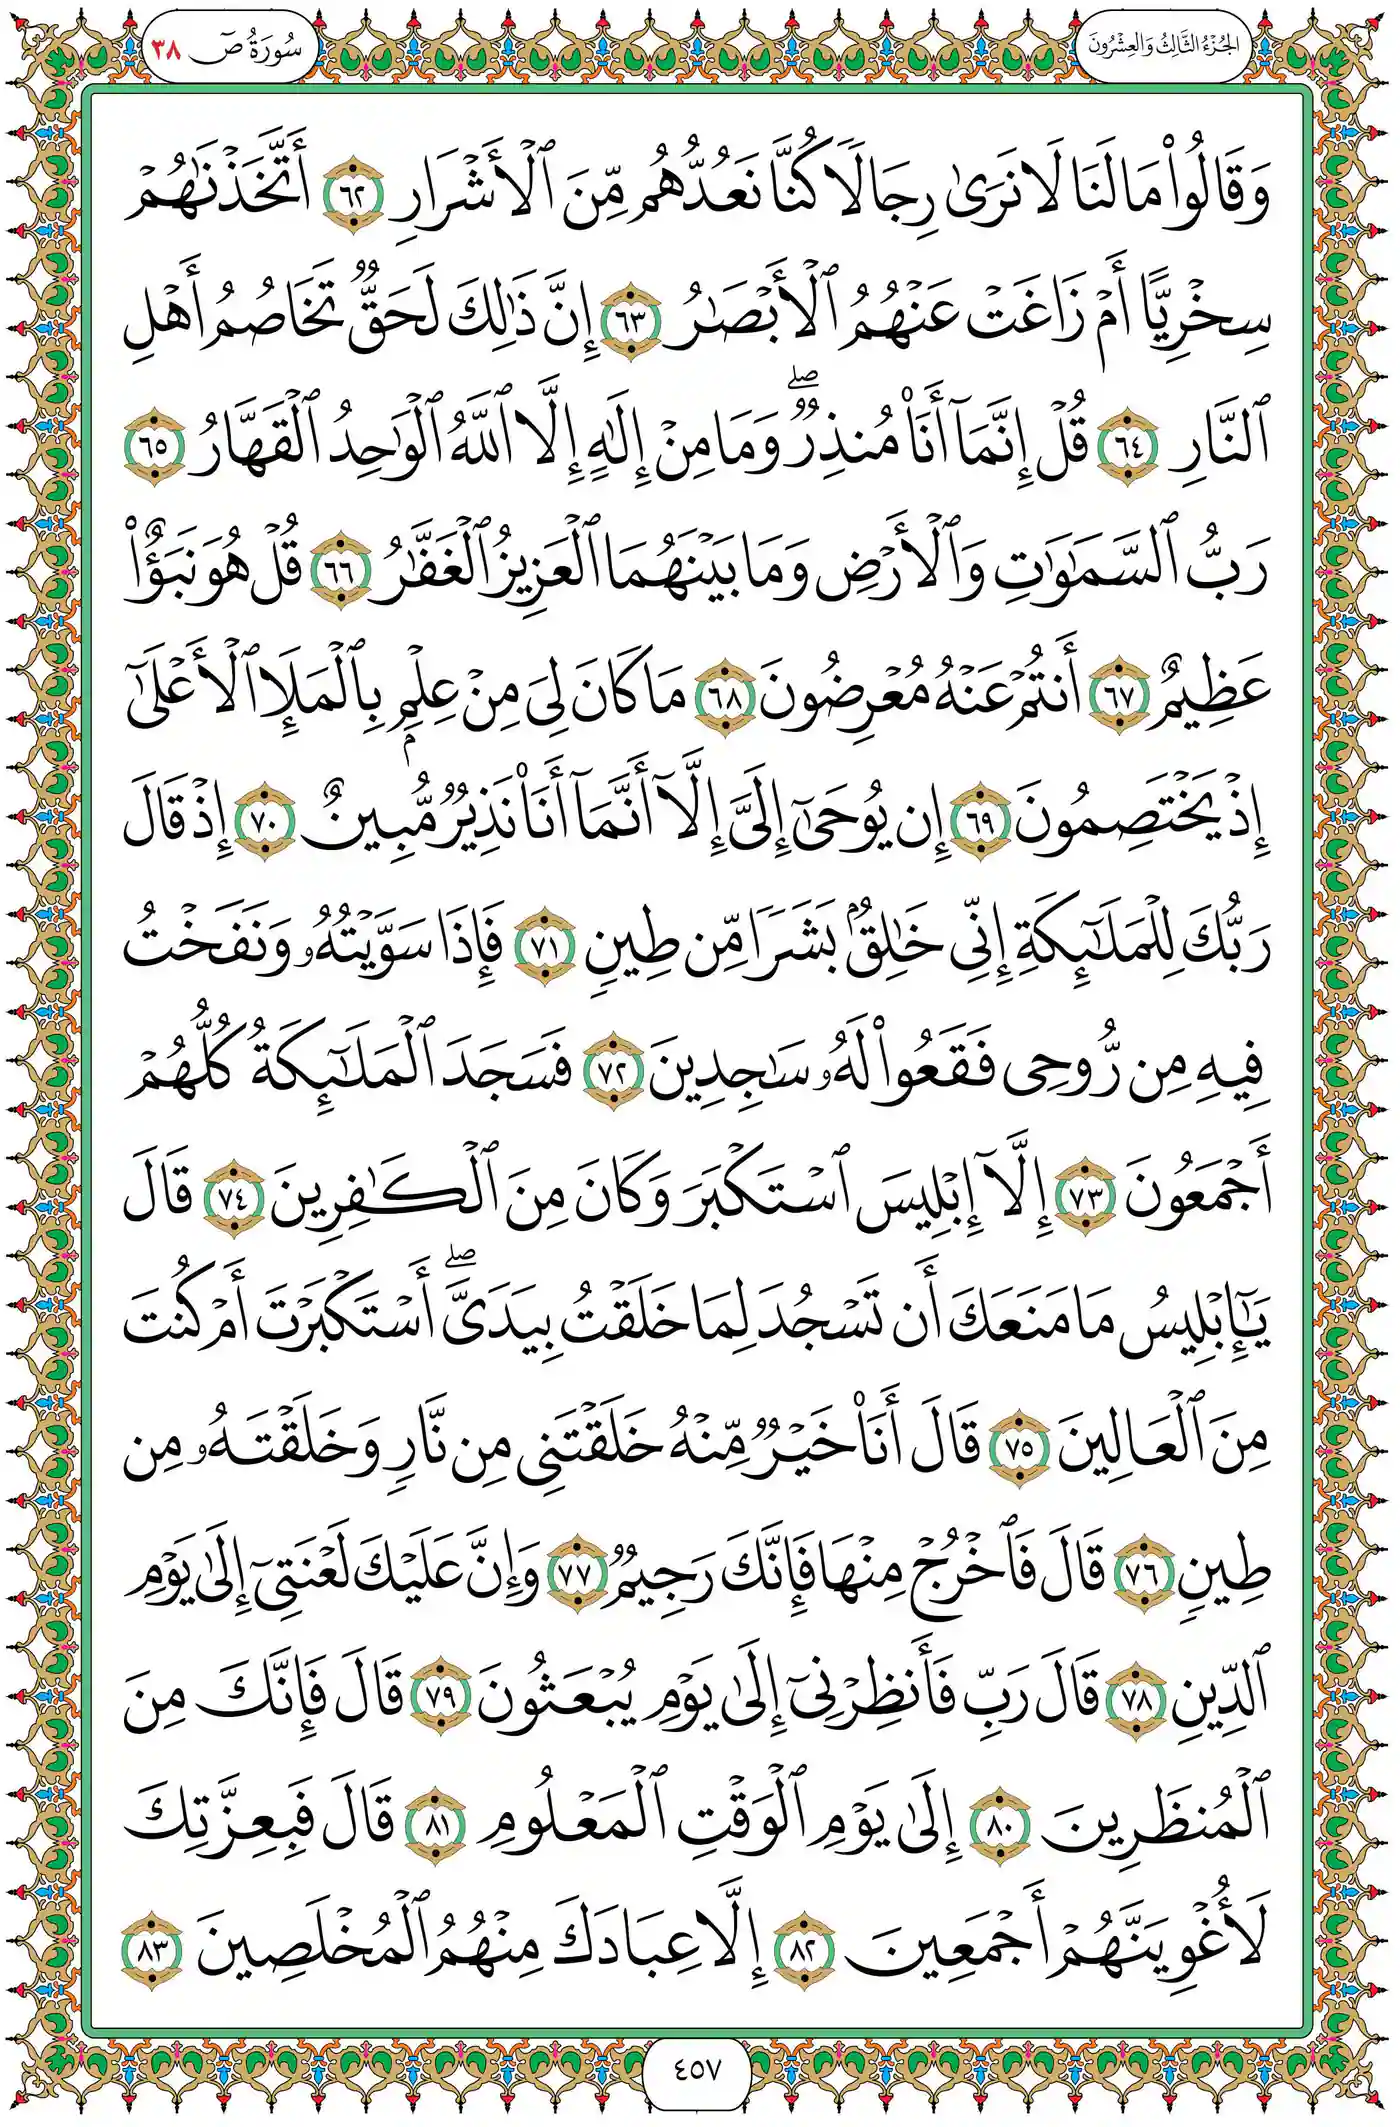 الجُزْءُ الثَّالِثُ وَالعِشْرُونَ
سُورَةُ صٓ ٣٨
وَقَالُوا۟ مَا لَنَا لَا نَرَىٰ رِجَالًا كُنَّا نَعُدُّهُم مِّنَ ٱلْأَشْرَارِ ٦٢ أَتَّخَذْنَـٰهُمْ
سِخْرِيًّا أَمْ زَاغَتْ عَنْهُمُ ٱلْأَبْصَـٰرُ ٦٣ إِنَّ ذَٰلِكَ لَحَقٌّ تَخَاصُمُ أَهْلِ
ٱلنَّارِ ٦٤ قُلْ إِنَّمَآ أَنَا۠ مُنذِرٌ ۖ وَمَا مِنْ إِلَـٰهٍ إِلَّا ٱللَّهُ ٱلْوَٰحِدُ ٱلْقَهَّارُ ٦٥
رَبُّ ٱلسَّمَـٰوَٰتِ وَٱلْأَرْضِ وَمَا بَيْنَهُمَا ٱلْعَزِيزُ ٱلْغَفَّـٰرُ ٦٦ قُلْ هُوَ نَبَؤٌا۟
عَظِيمٌ ٦٧ أَنتُمْ عَنْهُ مُعْرِضُونَ ٦٨ مَا كَانَ لِىَ مِنْ عِلْمٍۭ بِٱلْمَلَإِ ٱلْأَعْلَىٰٓ
إِذْ يَخْتَصِمُونَ ٦٩ إِن يُوحَىٰٓ إِلَىَّ إِلَّآ أَنَّمَآ أَنَا۠ نَذِيرٌ مُّبِينٌ ٧٠ إِذْ قَالَ
رَبُّكَ لِلْمَلَـٰٓئِكَةِ إِنِّى خَـٰلِقٌۢ بَشَرًا مِّن طِينٍ ٧١ فَإِذَا سَوَّيْتُهُۥ وَنَفَخْتُ
فِيهِ مِن رُّوحِى فَقَعُوا۟ لَهُۥ سَـٰجِدِينَ ٧٢ فَسَجَدَ ٱلْمَلَـٰٓئِكَةُ كُلُّهُمْ
أَجْمَعُونَ ٧٣ إِلَّآ إِبْلِيسَ ٱسْتَكْبَرَ وَكَانَ مِنَ ٱلْكَـٰفِرِينَ ٧٤ قَالَ
يَـٰٓإِبْلِيسُ مَا مَنَعَكَ أَن تَسْجُدَ لِمَا خَلَقْتُ بِيَدَىَّ ۖ أَسْتَكْبَرْتَ أَمْ كُنتَ
مِنَ ٱلْعَالِينَ ٧٥ قَالَ أَنَا۠ خَيْرٌ مِّنْهُ خَلَقْتَنِى مِن نَّارٍ وَخَلَقْتَهُۥ مِن
طِينٍ ٧٦ قَالَ فَٱخْرُجْ مِنْهَا فَإِنَّكَ رَجِيمٌ ٧٧ وَإِنَّ عَلَيْكَ لَعْنَتِىٓ إِلَىٰ يَوْمِ
ٱلدِّينِ ٧٨ قَالَ رَبِّ فَأَنظِرْنِىٓ إِلَىٰ يَوْمِ يُبْعَثُونَ ٧٩ قَالَ فَإِنَّكَ مِنَ
ٱلْمُنظَرِينَ ٨٠ إِلَىٰ يَوْمِ ٱلْوَقْتِ ٱلْمَعْلُومِ ٨١ قَالَ فَبِعِزَّتِكَ
لَأُغْوِيَنَّهُمْ أَجْمَعِينَ ٨٢ إِلَّا عِبَادَكَ مِنْهُمُ ٱلْمُخْلَصِينَ ٨٣
٤٥٧